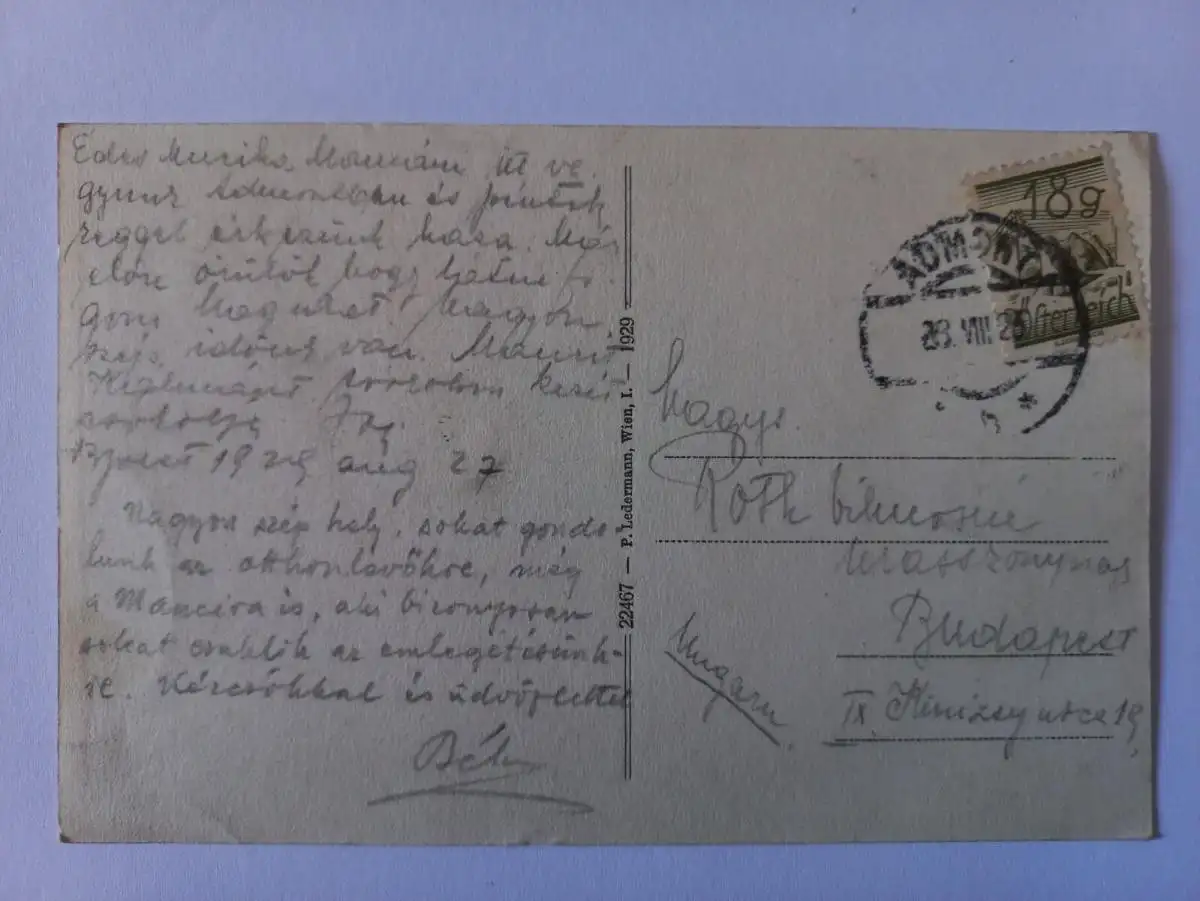 Édes Muzika Mamám itt va-
gyunk Admontban és péntek
reggel érkezünk haza. Már
előre örülök hogy
Nagyon
szép időnk van.
csókolom kezét
csókolja
Bpest 1929 aug 27
Nagyon szép hely, sokat gondo-
lunk az otthonlevőkre, még
a Mancira is, aki bizonyosan
sokat csuklik az emlegetésünk-
re. Kézcsókkal és üdvözlettel
Béla
22467 — P. Ledermann, Wien, I. — 1929
18g
Österreich
ADMONT
28. VIII 2
Nagys.
Róth Vilmosné
úrasszonynak
Budapest
Ungarn
IX Kinizsy utca 19